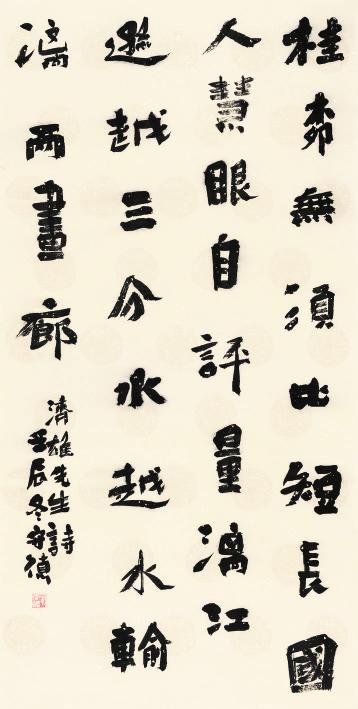 桂無須比短長國
人慧眼自評量漓江
遜越三分水越水輸
漓兩畫廊
濟雄先生詩
壬辰冬守德